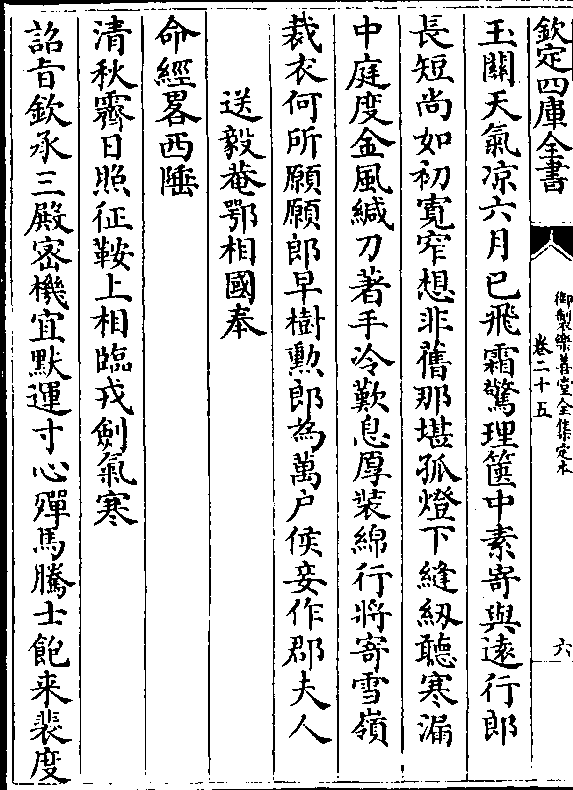 欽定四庫全書
御製樂善堂全集定本
卷二十五
六
玉關天氣凉六月已飛霜驚理篋中素寄與遠行郎
長短尚如初寛窄想非舊那堪孤燈下縫紉聽寒漏
中庭度金風緘刀著手冷歎息厚装綿行將寄雪嶺
裁衣何所願願郎早樹勲郎為萬户侯妾作郡夫人
送毅菴鄂相國奉
命經畧西陲
清秋霽日照征鞍上相臨戎劍氣寒
詔旨欽承三殿密機宜默運寸心殫馬騰士飽来裴度